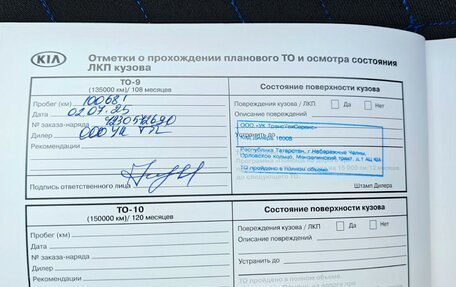 KIA
Отметки о прохождении планового ТО и осмотра состояния
ЛКП кузова
ТО-9
(135000 км) / 108 месяцев
Состояние поверхности кузова
Пробег (км) 100681
Повреждения кузова / ЛКП Да Нет
Дата 02.07.25
Описание повреждений
№ заказа-наряда
ООО «УК ТрансТехСервис»
Дилер ООО УК ТТС
Устранить до
Код Дилера
Рекомендации
Республика Татарстан, г. Набережные Челны,
Орловское кольцо, Мензелинский тракт, д.1 АЦ КИА
ТО пройдено в полном объеме.
Подпись ответственного лица
Штамп Дилера
ТО-10
(150000 км) / 120 месяцев
Состояние поверхности кузова
Пробег (км)
Повреждения кузова / ЛКП Да Нет
Дата
Описание повреждений
№ заказа-наряда
Дилер
Устранить до
Рекомендации
ТО пройдено в полном объеме.